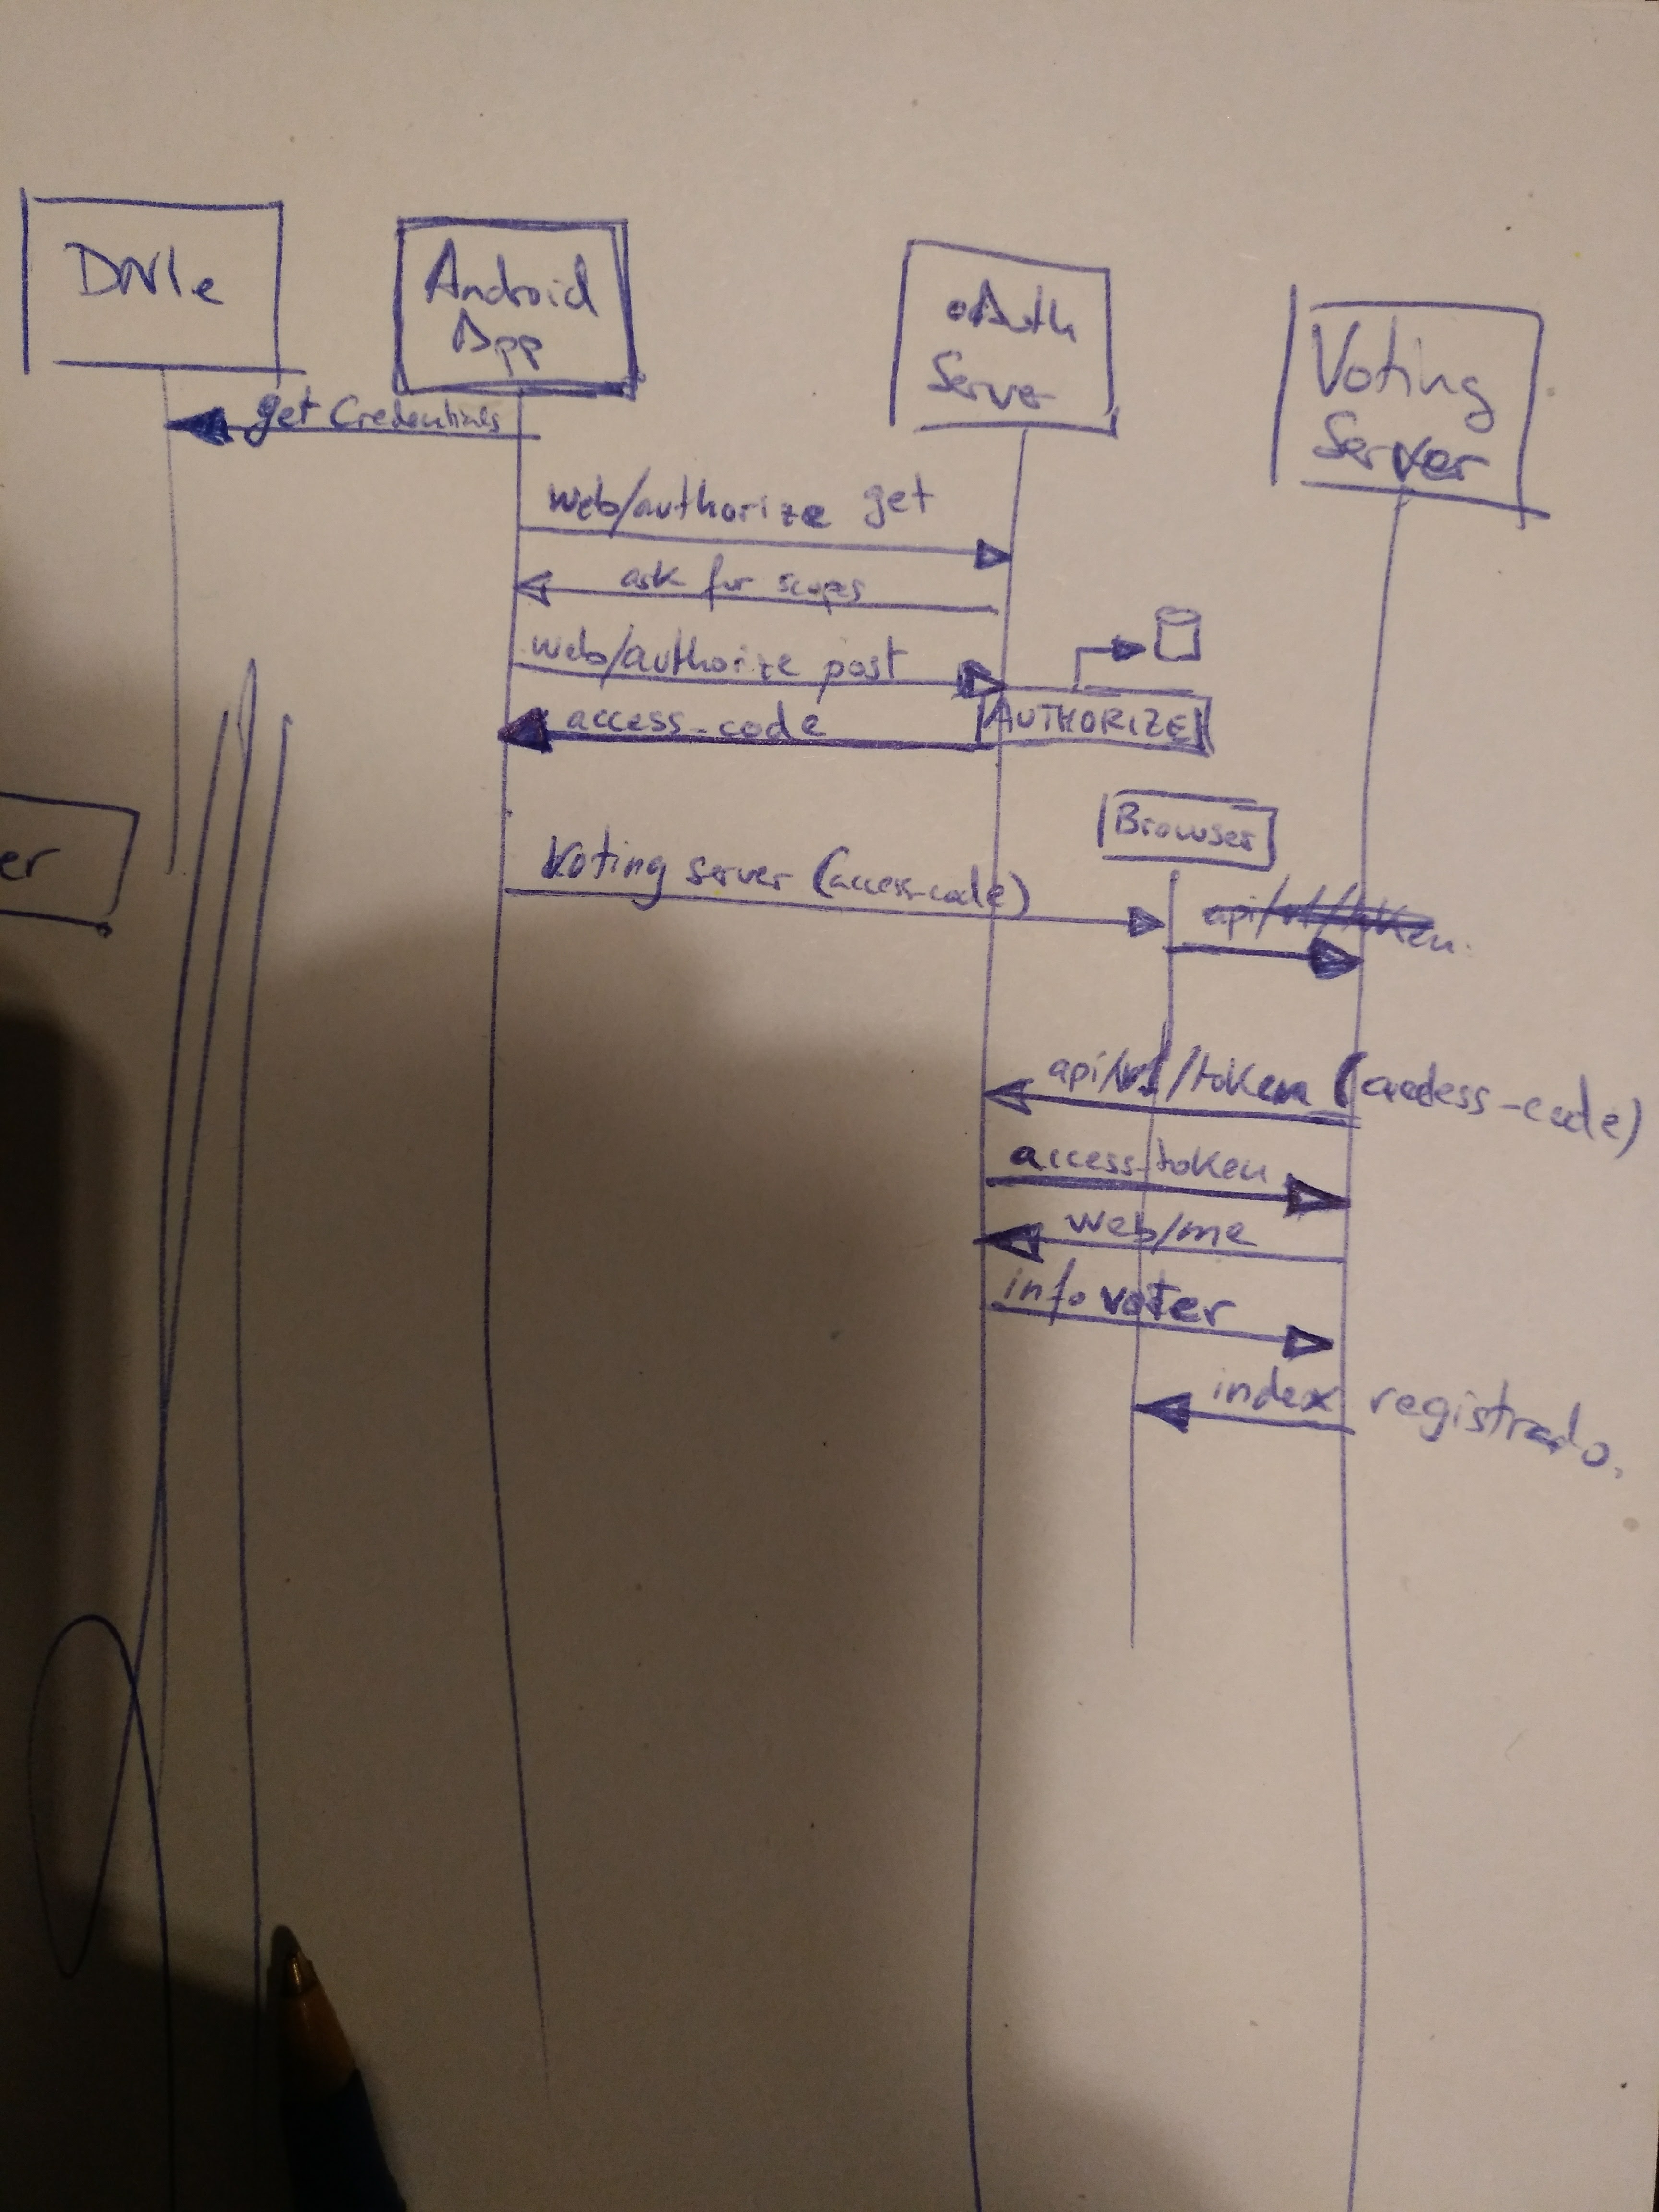 DNIe
Android
App
oAuth
Server
Voting
Server
get Credentials
web/authorize get
ask for scopes
web/authorize post
access_code
AUTHORIZE
Browser
er
Voting server (access-code)
api/v1/token
api/v1/token (access-code)
access-token
web/me
info voter
index registrado.